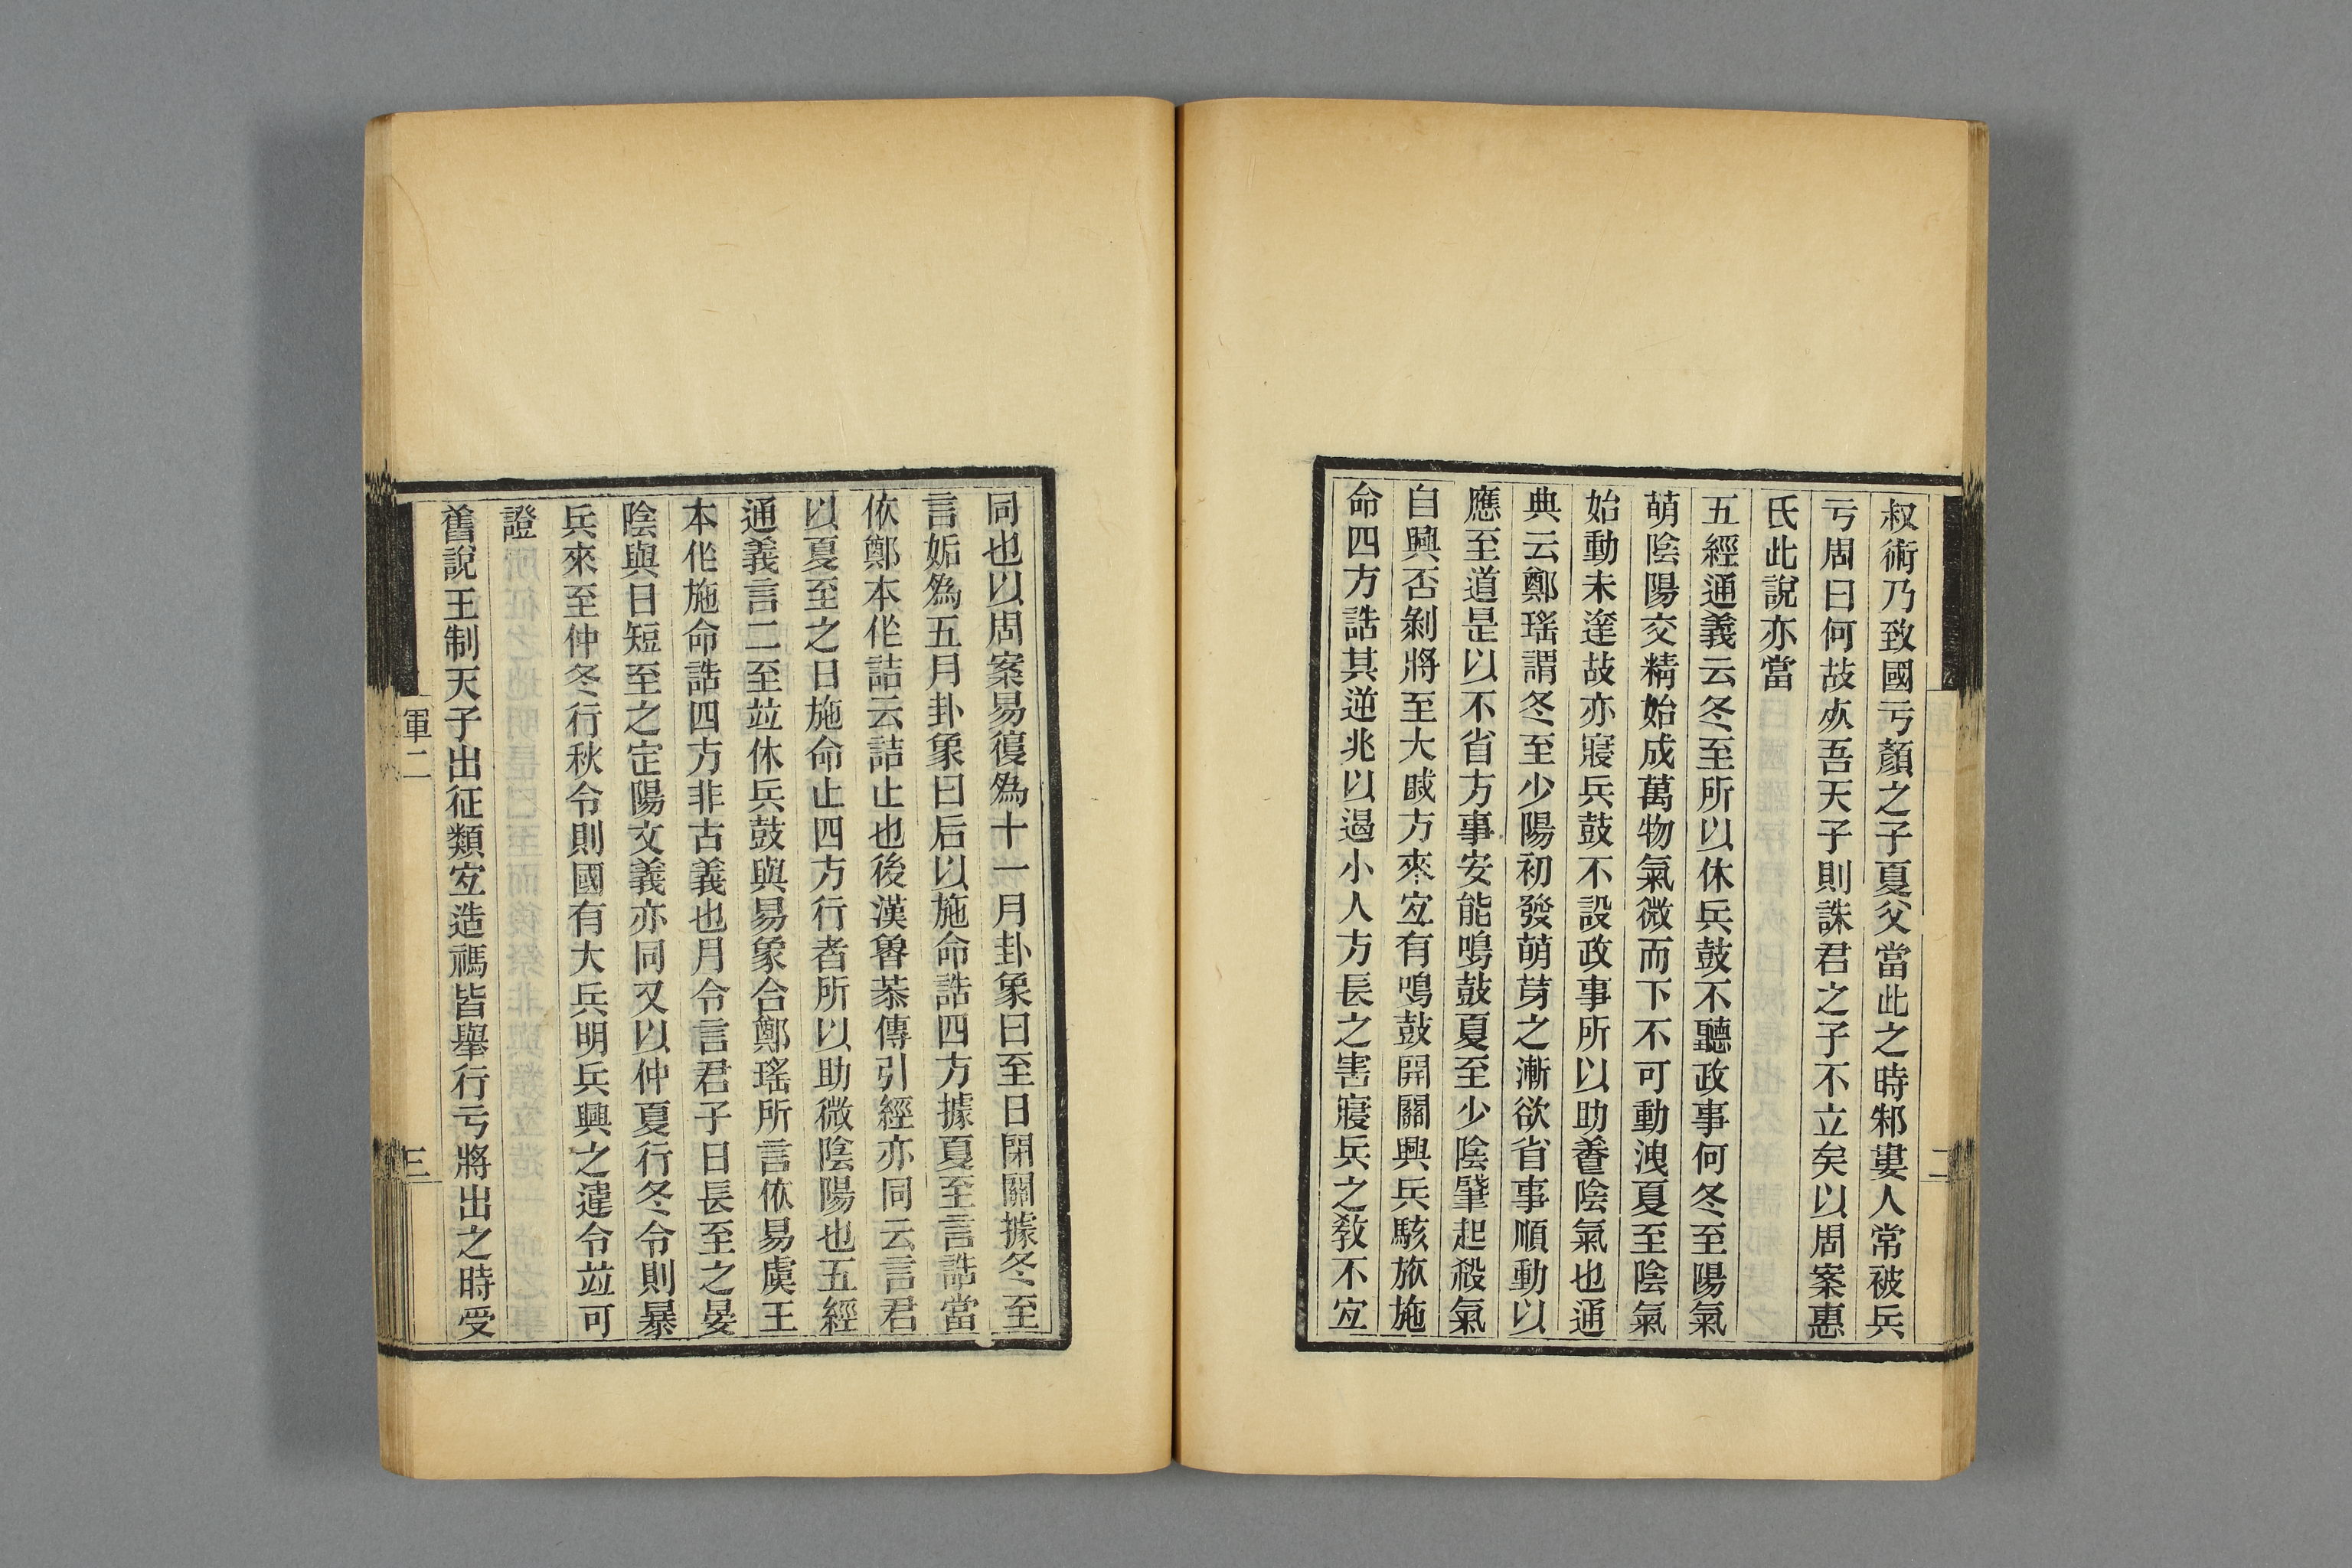 叔術乃致國亏顏之子夏父當此之時邾婁人常被兵
亏周曰何故𣧑吾天子則誅君之子不立矣以周案惠
氏此說亦當
五經通義云冬至所以休兵鼓不聽政事何冬至陽氣
萌陰陽交精始成萬物氣微而下不可動洩夏至陰氣
始動未達故亦寢兵鼓不設政事所以助養陰氣也通
典云鄭瑤謂冬至少陽初發萌芽之漸欲省事順動以
應至道是以不省方事安能鳴鼓夏至少陰肇起殺氣
自興否剝將至大戚方來宐有鳴鼓開關興兵駭旅施
命四方誥其逆兆以遏小人方長之害寢兵之敎不宐
二
同也以周案易復爲十一月卦象曰至日閉關據冬至
言姤爲五月卦象曰后以施命誥四方據夏至言誥當
依鄭本作詰云詰止也後漢魯恭傳引經亦同云言君
以夏至之日施命止四方行者所以助微陰陽也五經
通義言二至竝休兵鼓與易象合鄭瑤所言依易虞王
本作施命誥四方非古義也月令言君子日長至之晏
陰與日短至之定陽文義亦同又以仲夏行冬令則暴
兵來至仲冬行秋令則國有大兵明兵興之違令竝可
證
舊說王制天子出征類宐造禡皆舉行亏將出之時受
軍二
三